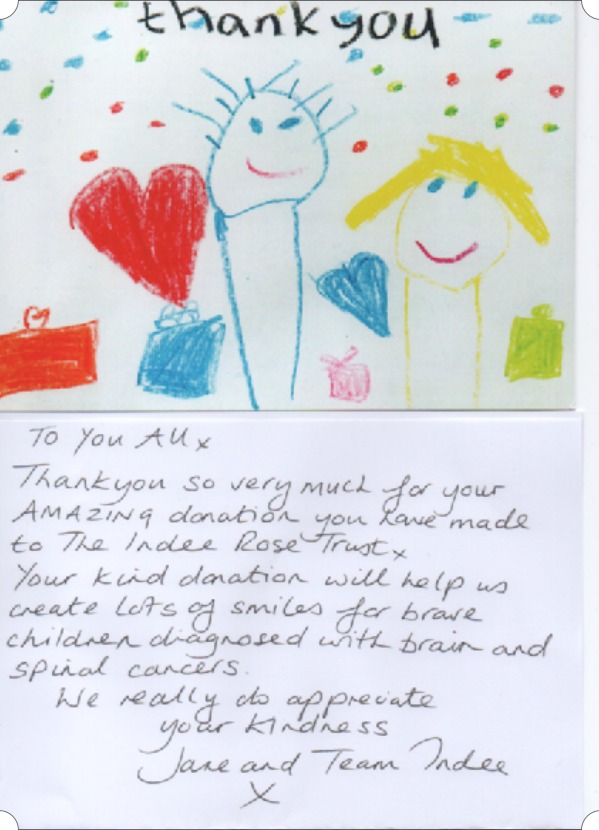 thankyou
To You All x
Thankyou so very much for your
AMAZING donation you have made
to The Indee Rose Trust x
Your kind donation will help us
create lots of smiles for brave
children diagnosed with brain and
spinal cancers.
We really do appreciate
your kindness
Jane and Team Indee
X